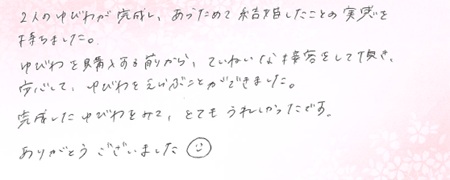 2人のゆびわが完成し、あらためて結婚したことの実感を
持ちました。
ゆびわを購入する前から、ていねいな接客をして頂き、
安心して、ゆびわをえらぶことができました。
完成したゆびわをみて、とてもうれしかったです。
ありがとうございました